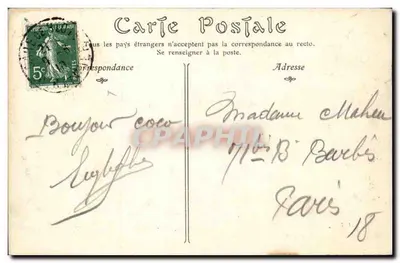 Carte Postale
Tous les pays étrangers n'acceptent pas la correspondance au recto.
Se renseigner à la poste.
Correspondance
Adresse
5c
Bonjour coco
Madame Maheu
71bis B Barbès
Paris
18
CPAPHIL